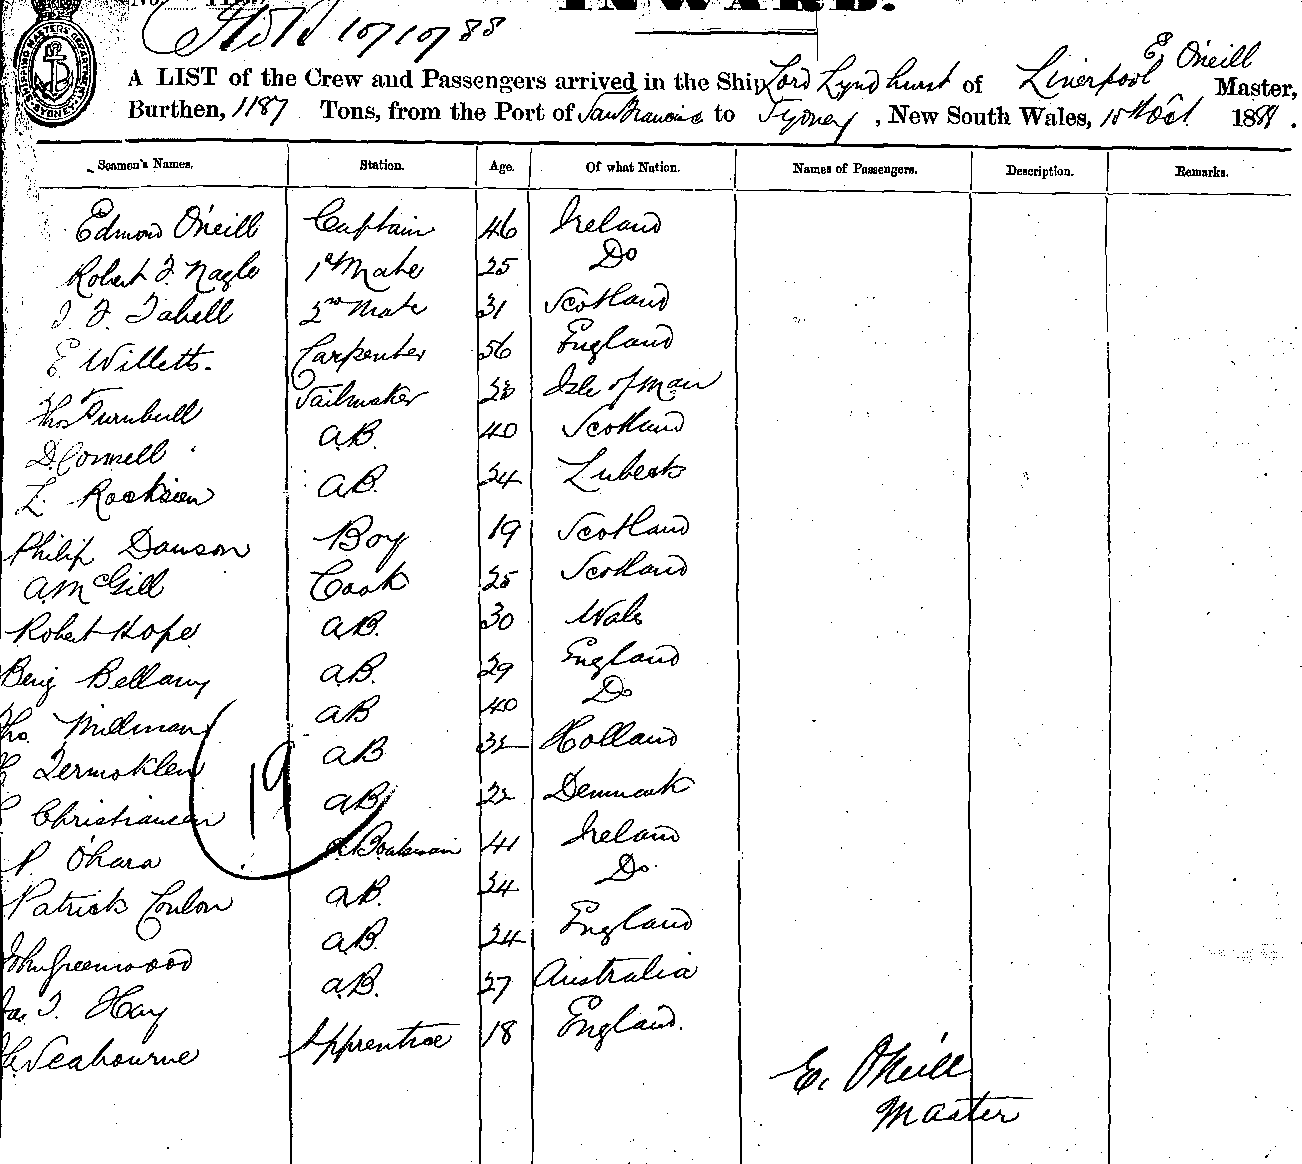 INWARD.
10/10/88
E. O'neill
A LIST of the Crew and Passengers arrived in the Ship Lord Lyndhurst of Liverpool Master,
Burthen, 1187 Tons, from the Port of San Francisco to Sydney, New South Wales, 10th Oct. 1888.
Seamen's Names. Station. Age. Of what Nation. Names of Passengers. Description. Remarks.
Edmond O'neill Captain 46 Ireland
Robert J. Nagle 1st Mate 25 Do
J. F. Tabell 2nd Mate 31 Scotland
E Willetts. Carpenter 56 England
Thos Turnbull Sailmaker Isle of Man
D. Connell A.B. 40 Scotland
L. A.B. 24 Lubeck
Philip Dawson Boy 19 Scotland
A. McGill Cook 25 Scotland
Robert Hope A.B. 30 Wales
Benj Bellamy A.B. 29 England
Tho. Millman A.B 40 Do
Termoklen A.B 32 Holland
Christiansen A.B 22 Denmark
19
P. O'hara Boatswain 41 Ireland
Patrick Conlon A.B. 24 Do
John Greenwood A.B. 24 England
Jas. T. Hay A.B. 27 Australia
Seabourne Apprentice 18 England.
E. O'Neill
Master